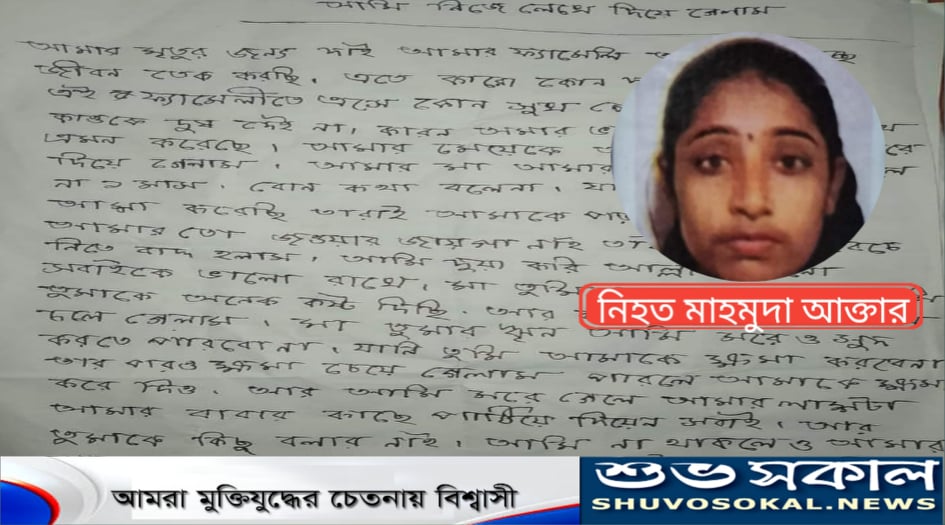 আমি নিজে লেখে দিয়ে গেলাম
আমার মৃতুর জন্য দাই আমার ফ্যামেলি
জীবন তেক করছি। এতে কারো কোন
এই ফ্যামেলীতে এসে কোন সুখ
কাওকে দুষ দেই না। কারন আমার
এমন করেছে। আমার মেয়েকে
দিয়ে গেলাম। আমার মা আমার
না ১ মাস। বোন কথা বলেনা। যা
আশা করেছি তারাই আমাকে
আমার তো জাওয়ার জায়গা নাই
নিতে বাদ্দ হলাম। আমি দুয়া করি আল্লা
সবাইকে ভালো রাখে। মা তুমি
তুমাকে অনেক কষ্ট দিছি। আর
চলে গেলাম। মা তুমার ঋন আমি মরে ও সুদ
করতে পারবোনা। যানি তুমি আমাকে ক্ষমা করবেনা
তার পারও ক্ষমা চেয়ে গেলাম পারলে আমাকে ক্ষমা
করে দিও। আর আমি মরে গেলে আমার লাশটা
আমার বাবার কাছে পাঠিয়ে দিয়েন সবাই। আর
তুমাকে কিছু বলার নাই। আমি না থাকলে ও আমার
নিহত মাহমুদা আক্তার
আমরা মুক্তিযুদ্ধের চেতনায় বিশ্বাসী
শুভ সকাল
SHUVOSOKAL.NEWS